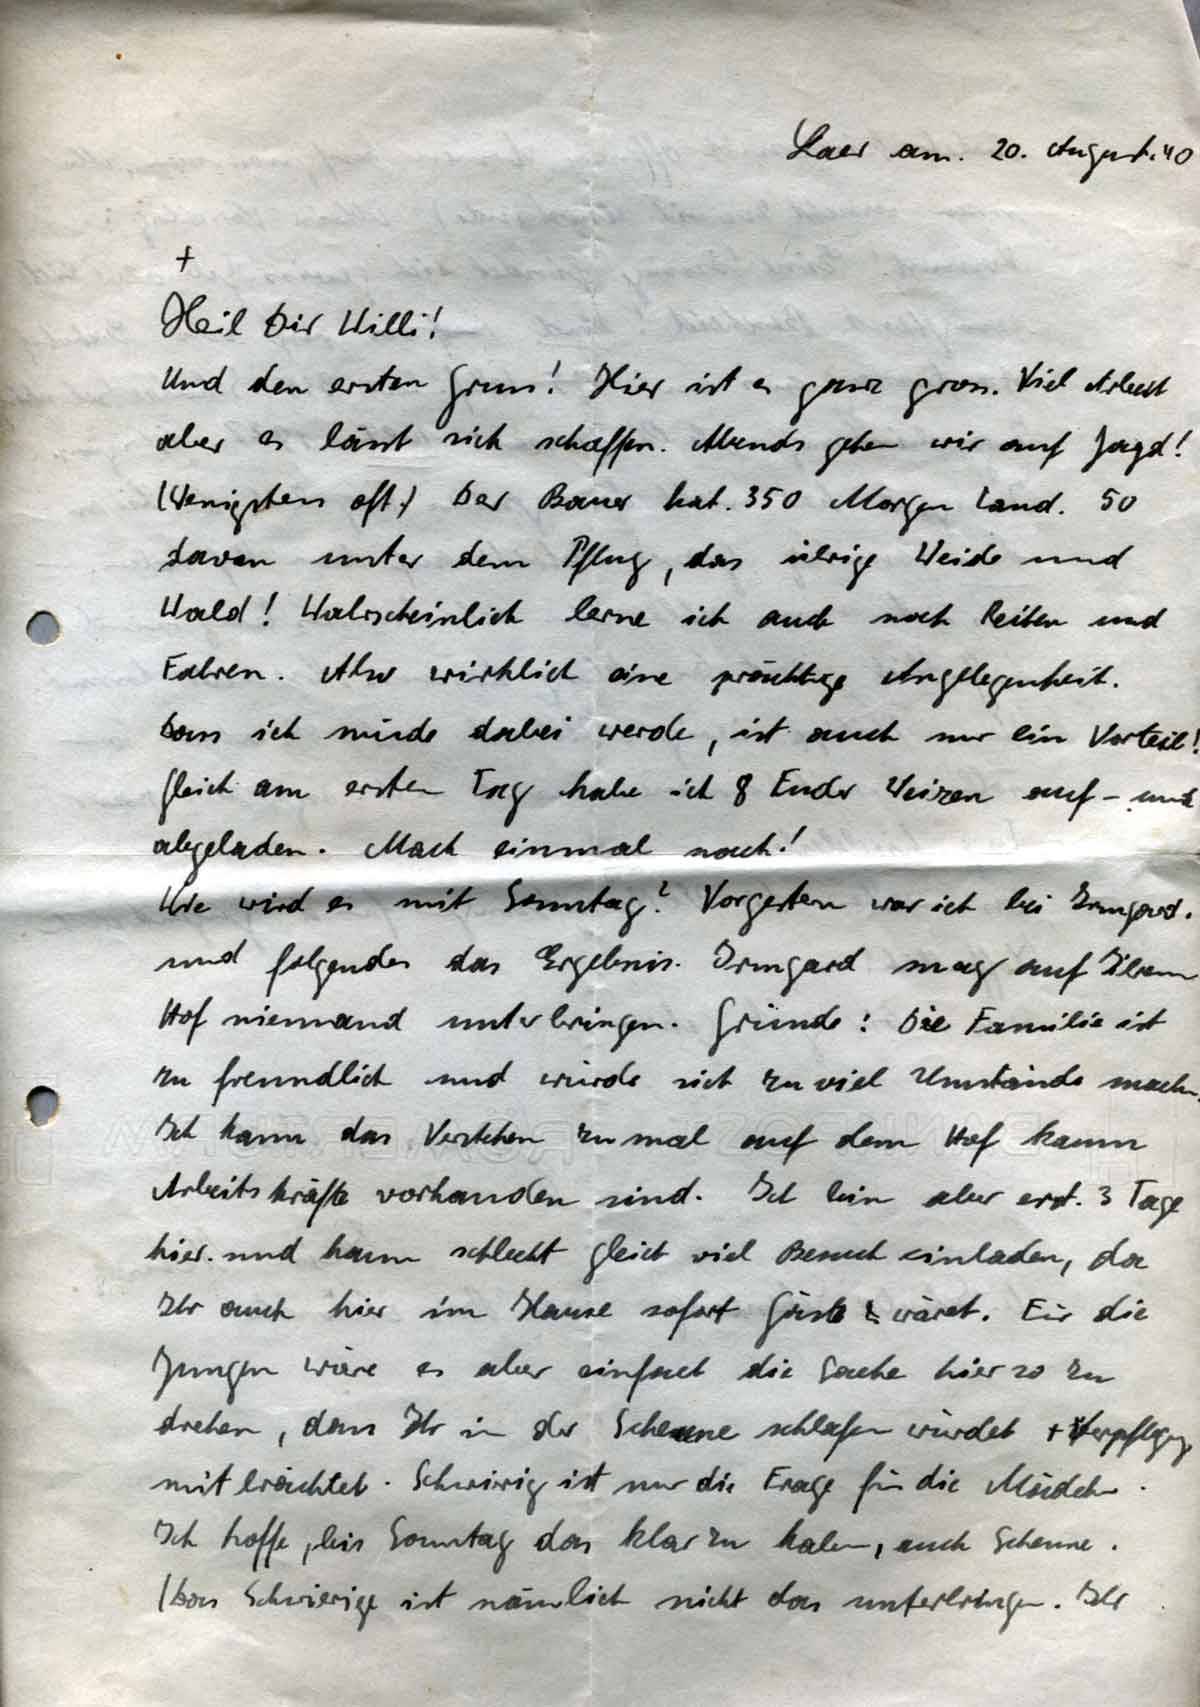 Laer am. 20. August. 40
+
Heil Dir Willi!
Und den ersten Gruss! Hier ist es ganz gross. Viel Arbeit
aber es lässt sich schaffen. Abends gehen wir auf Jagd!
(Wenigstens oft.) Der Bauer hat. 350 Morgen Land. 50
davon unter dem Pflug, das übrige Weide und
Wald! Wahrscheinlich lerne ich auch noch Reiten und
Fahren. Also wirklich eine prächtige Angelegenheit.
Dass ich müde dabei werde, ist auch nur ein Vorteil!
Gleich am ersten Tag habe ich 8 Fuder Weizen auf- und
abgeladen. Mach einmal nach!
Wie wird es mit Sonntag? Vorgestern war ich bei Irmgard.
und folgendes das Ergebnis. Irmgard mag auf Ihrem
Hof niemand unterbringen. Gründe: Die Familie ist
zu freundlich und würde sich zu viel Umstände machen.
Ich kann das Verstehen zumal auf dem Hof kaum
Arbeitskräfte vorhanden sind. Ich bin aber erst. 3 Tage
hier. und kann schlecht gleich viel Besuch einladen, da
Ihr auch hier im Hause sofort Gäste wäret. Für die
Jungen wäre es aber einfach die Sache hier so zu
drehen, dass Ihr in der Scheune schlafen würdet + Verpflegung
mitbrächtet. Schwirig ist nur die Frage für die Mädchen.
Ich hoffe, bis Sonntag das klar zu haben, auch Scheune.
(Das Schwierige ist nämlich nicht das unterbringen. Ihr